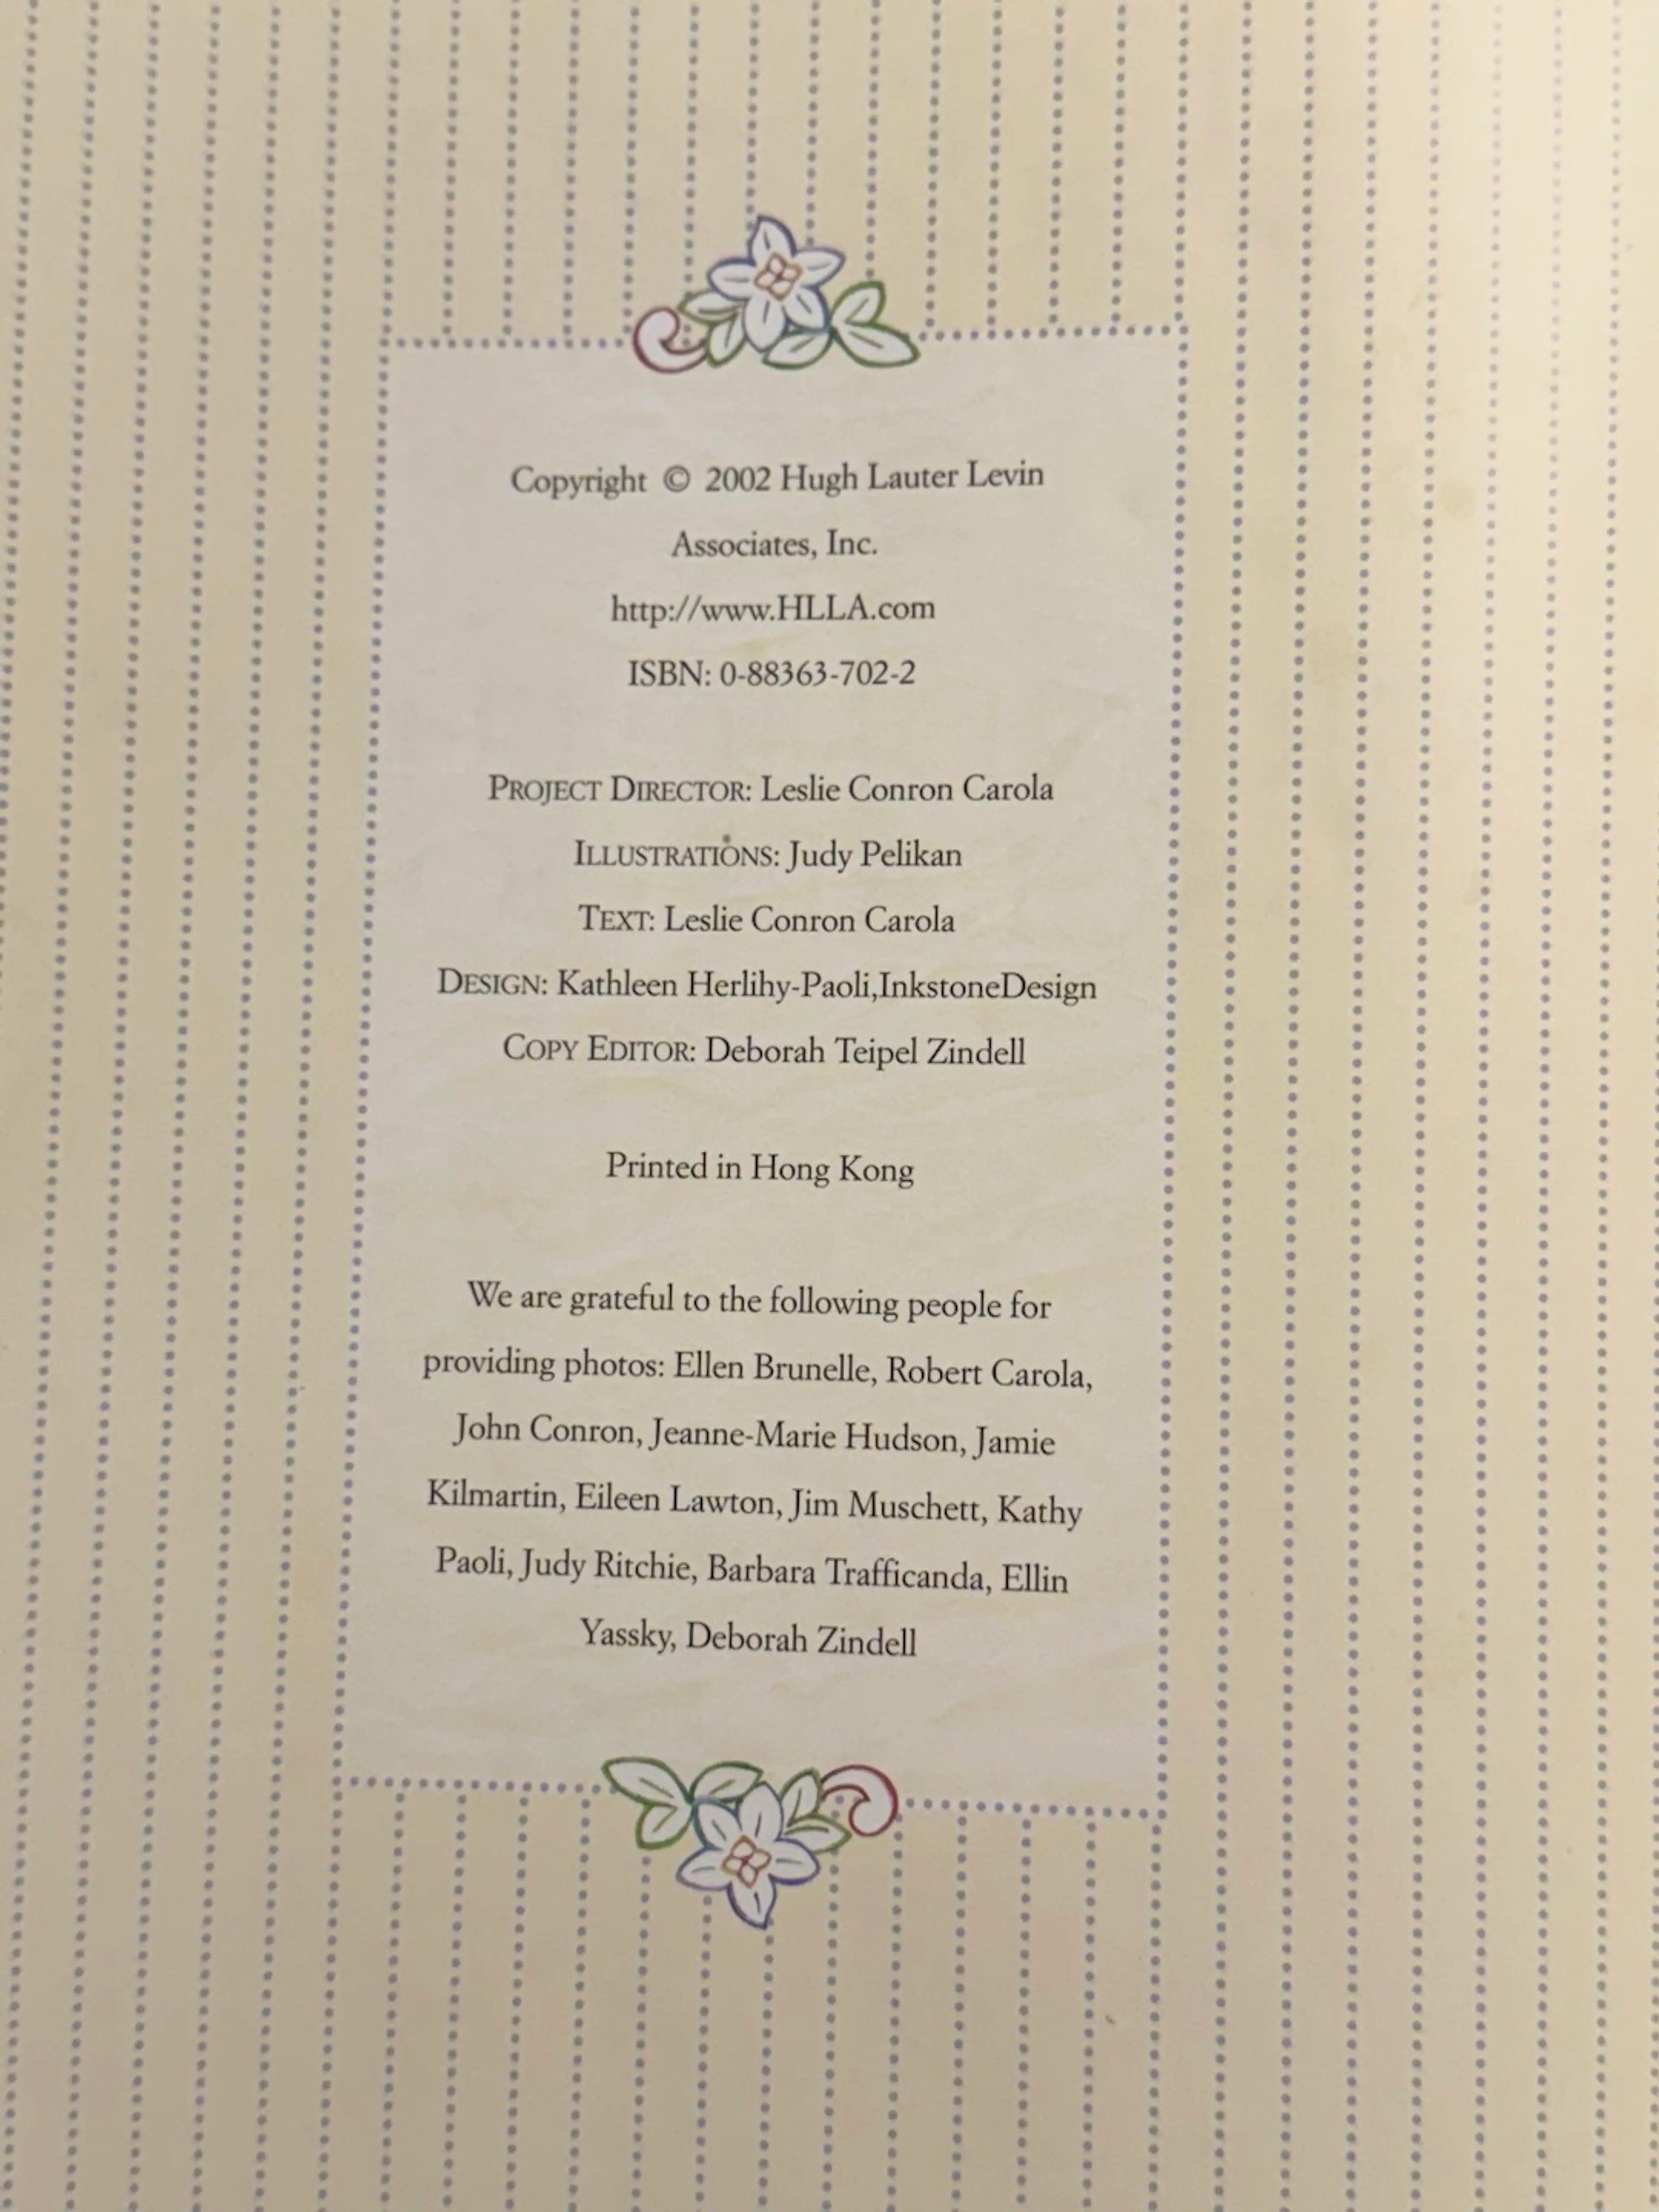 Copyright © 2002 Hugh Lauter Levin
Associates, Inc.
http://www.HLLA.com
ISBN: 0-88363-702-2
PROJECT DIRECTOR: Leslie Conron Carola
ILLUSTRATIONS: Judy Pelikan
TEXT: Leslie Conron Carola
DESIGN: Kathleen Herlihy-Paoli,InkstoneDesign
COPY EDITOR: Deborah Teipel Zindell
Printed in Hong Kong
We are grateful to the following people for
providing photos: Ellen Brunelle, Robert Carola,
John Conron, Jeanne-Marie Hudson, Jamie
Kilmartin, Eileen Lawton, Jim Muschett, Kathy
Paoli, Judy Ritchie, Barbara Trafficanda, Ellin
Yassky, Deborah Zindell